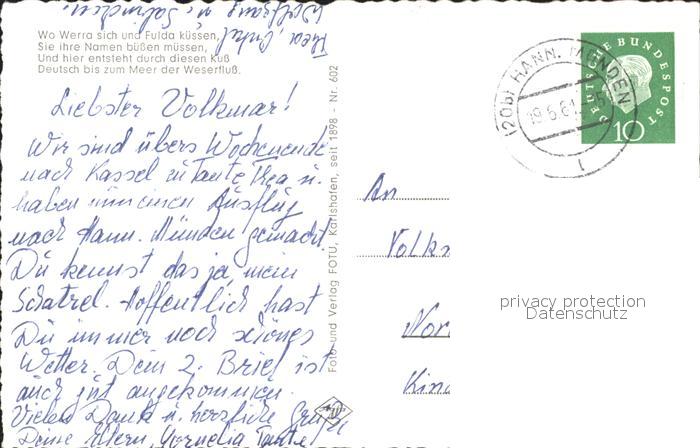 Wo Werra sich und Fulda küssen,
Sie ihre Namen büßen müssen,
Und hier entsteht durch diesen Kuß
Deutsch bis zum Meer der Weserfluß.
Liebster Volkmar!
Wir sind übers Wochenende
nach Kassel zu Tante Thea u.
haben nun einen Ausflug
nach Hann. Münden gemacht.
Du kennst das ja, mein
Schatzel. Hoffentlich hast
Du immer noch schönes
Wetter. Dein 2. Brief ist
auch gut angekommen.
Vielen Dank u. herzliche Grüße
Deine Eltern, Cornelia, Tante
Thea, Onkel
Wolfgang u.
Foto und Verlag FOTU, Karlshafen, seit 1898 - Nr. 602
(20b) HANN. MÜNDEN
19.6.61
DEUTSCHE BUNDESPOST
10
An
Volks
Nor
Kin
privacy protection
Datenschutz